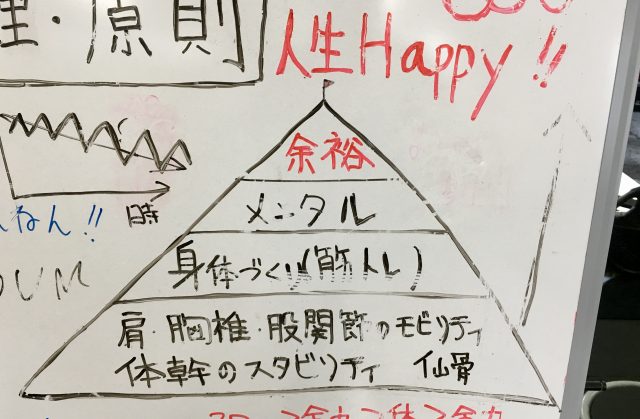 理・原則
人生Happy!!
余裕
メンタル
んねん!!
時
身体づくり(筋トレ)
UM
肩・胸椎・股関節のモビリティ
体幹のスタビリティ 仙骨